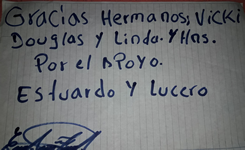 Gracias Hermanos; Vicki
Douglas y Linda. Y Hns.
Por el APoyo.
Estuardo Y Lucero